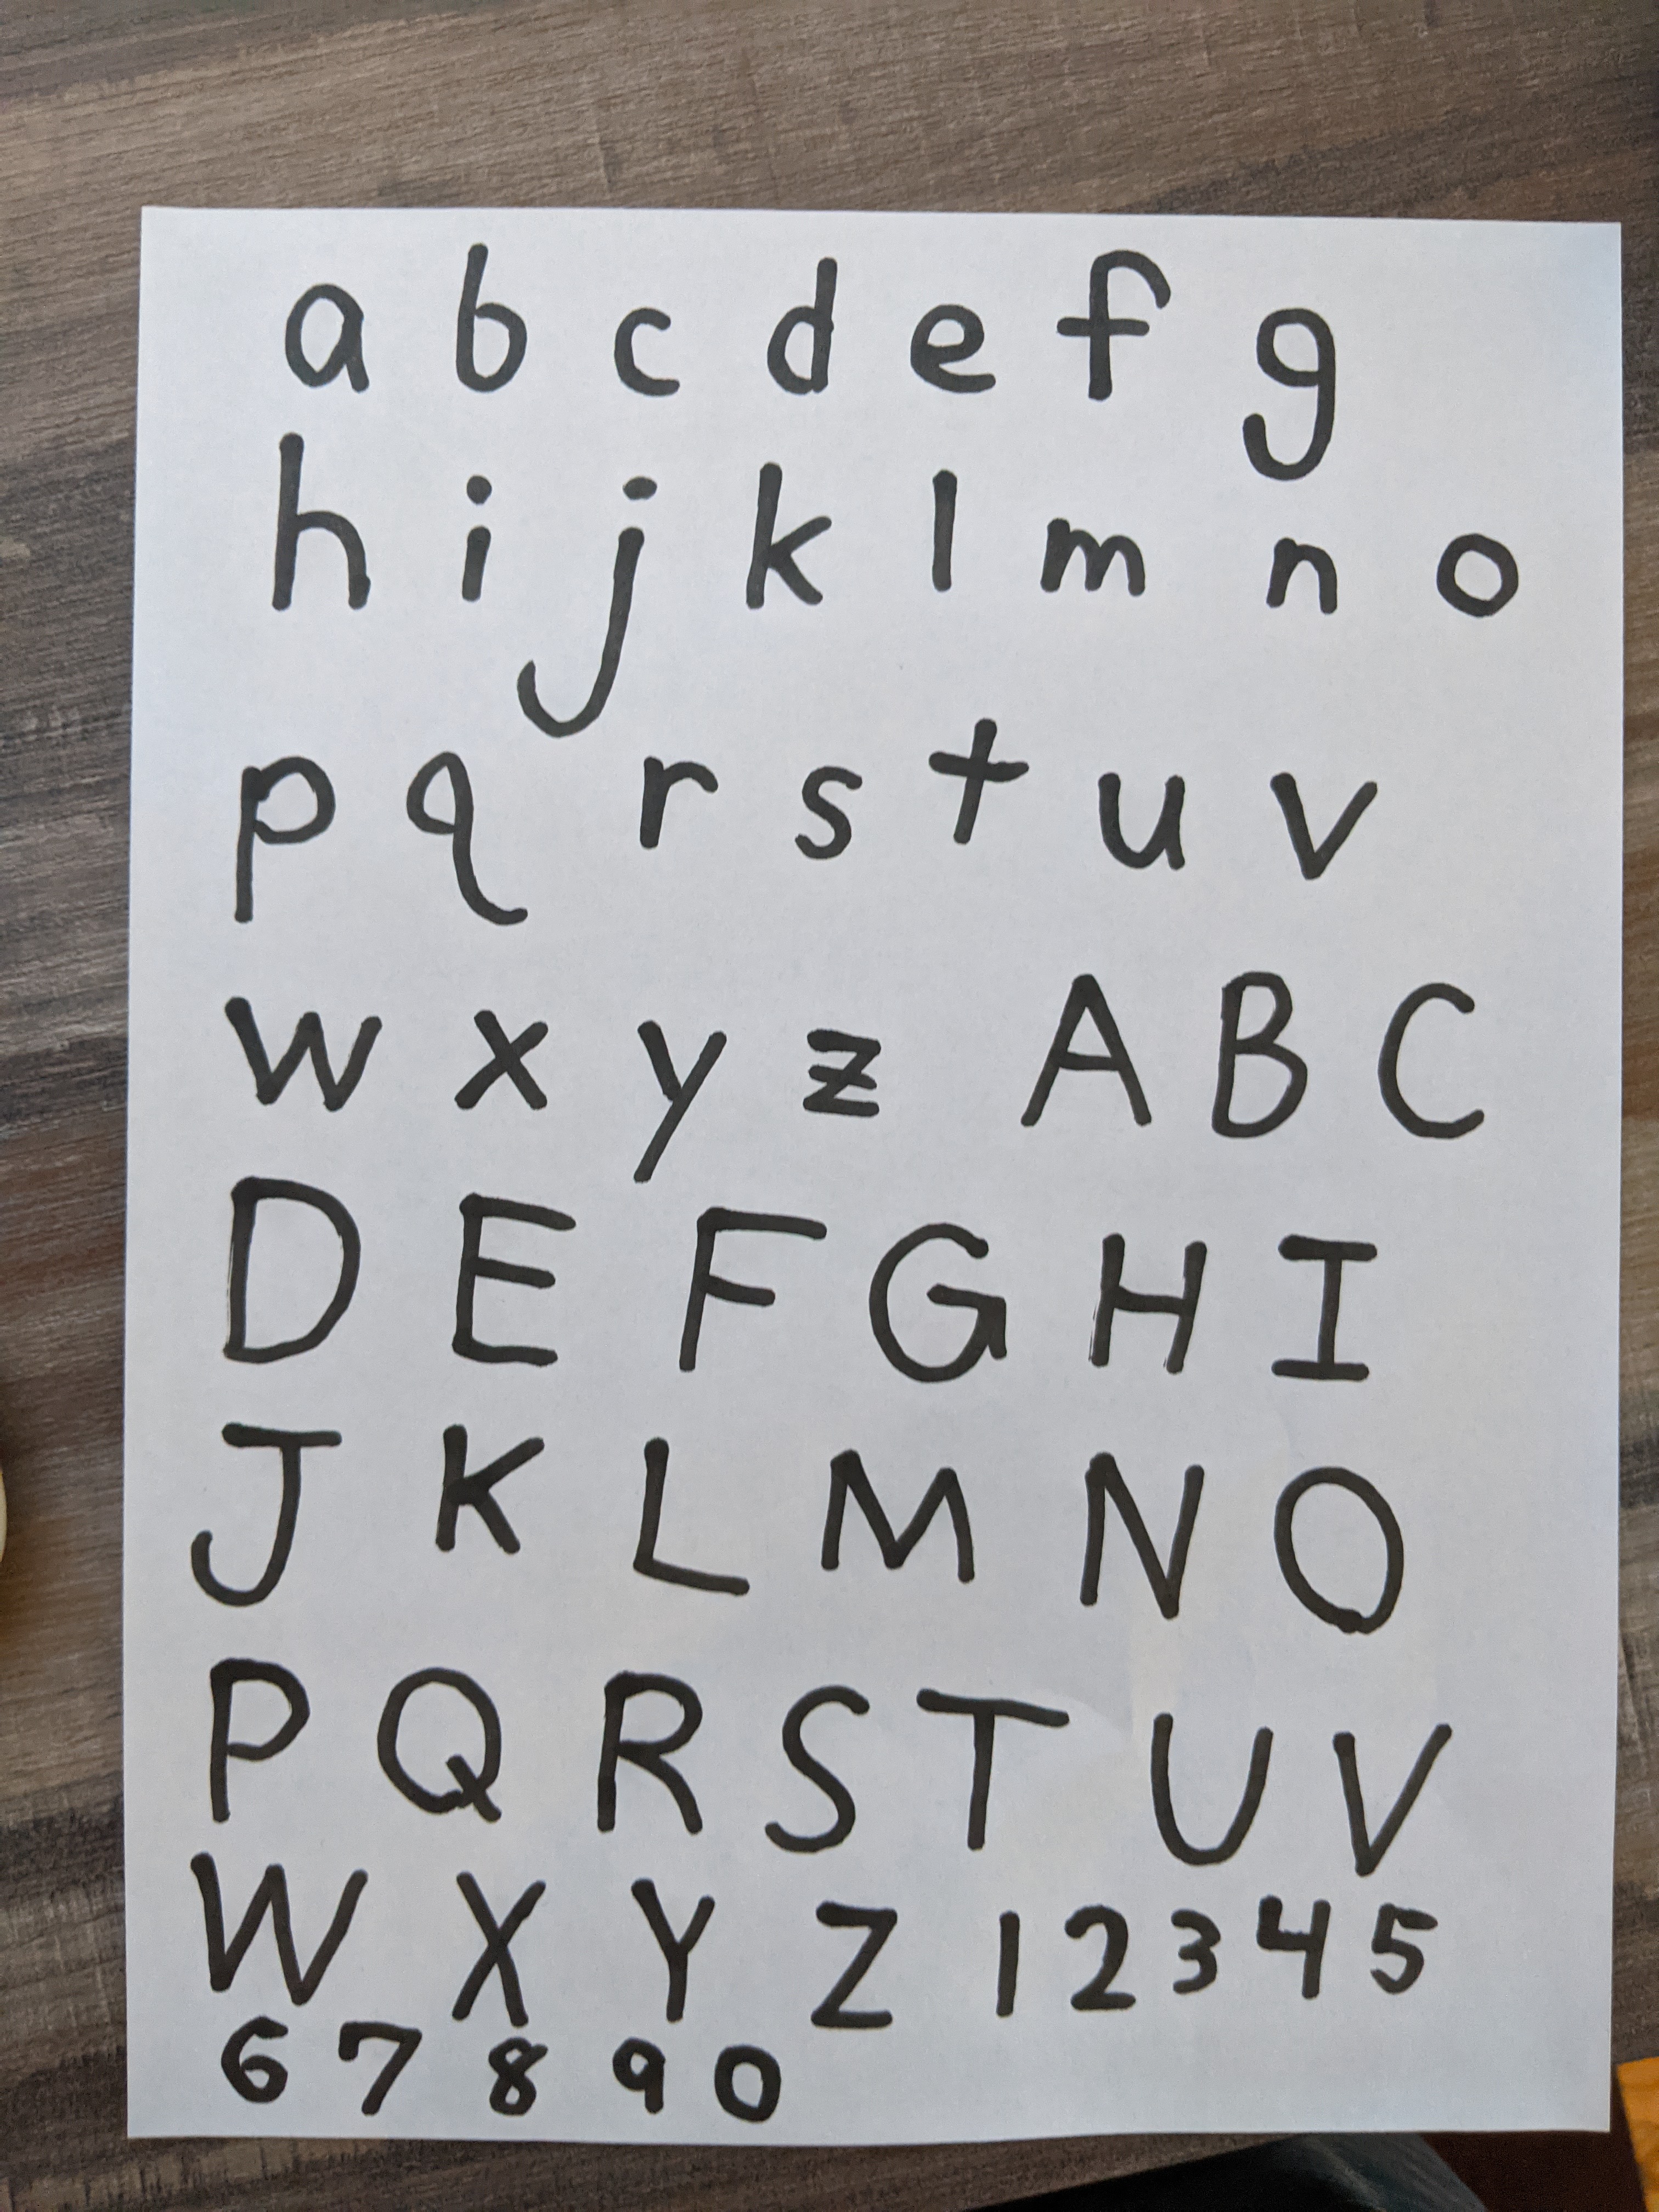 a b c d e f g
h i j k l m n o
p q r s t u v
w x y z A B C
D E F G H I
J K L M N O
P Q R S T U V
W X Y Z 1 2 3 4 5
6 7 8 9 0